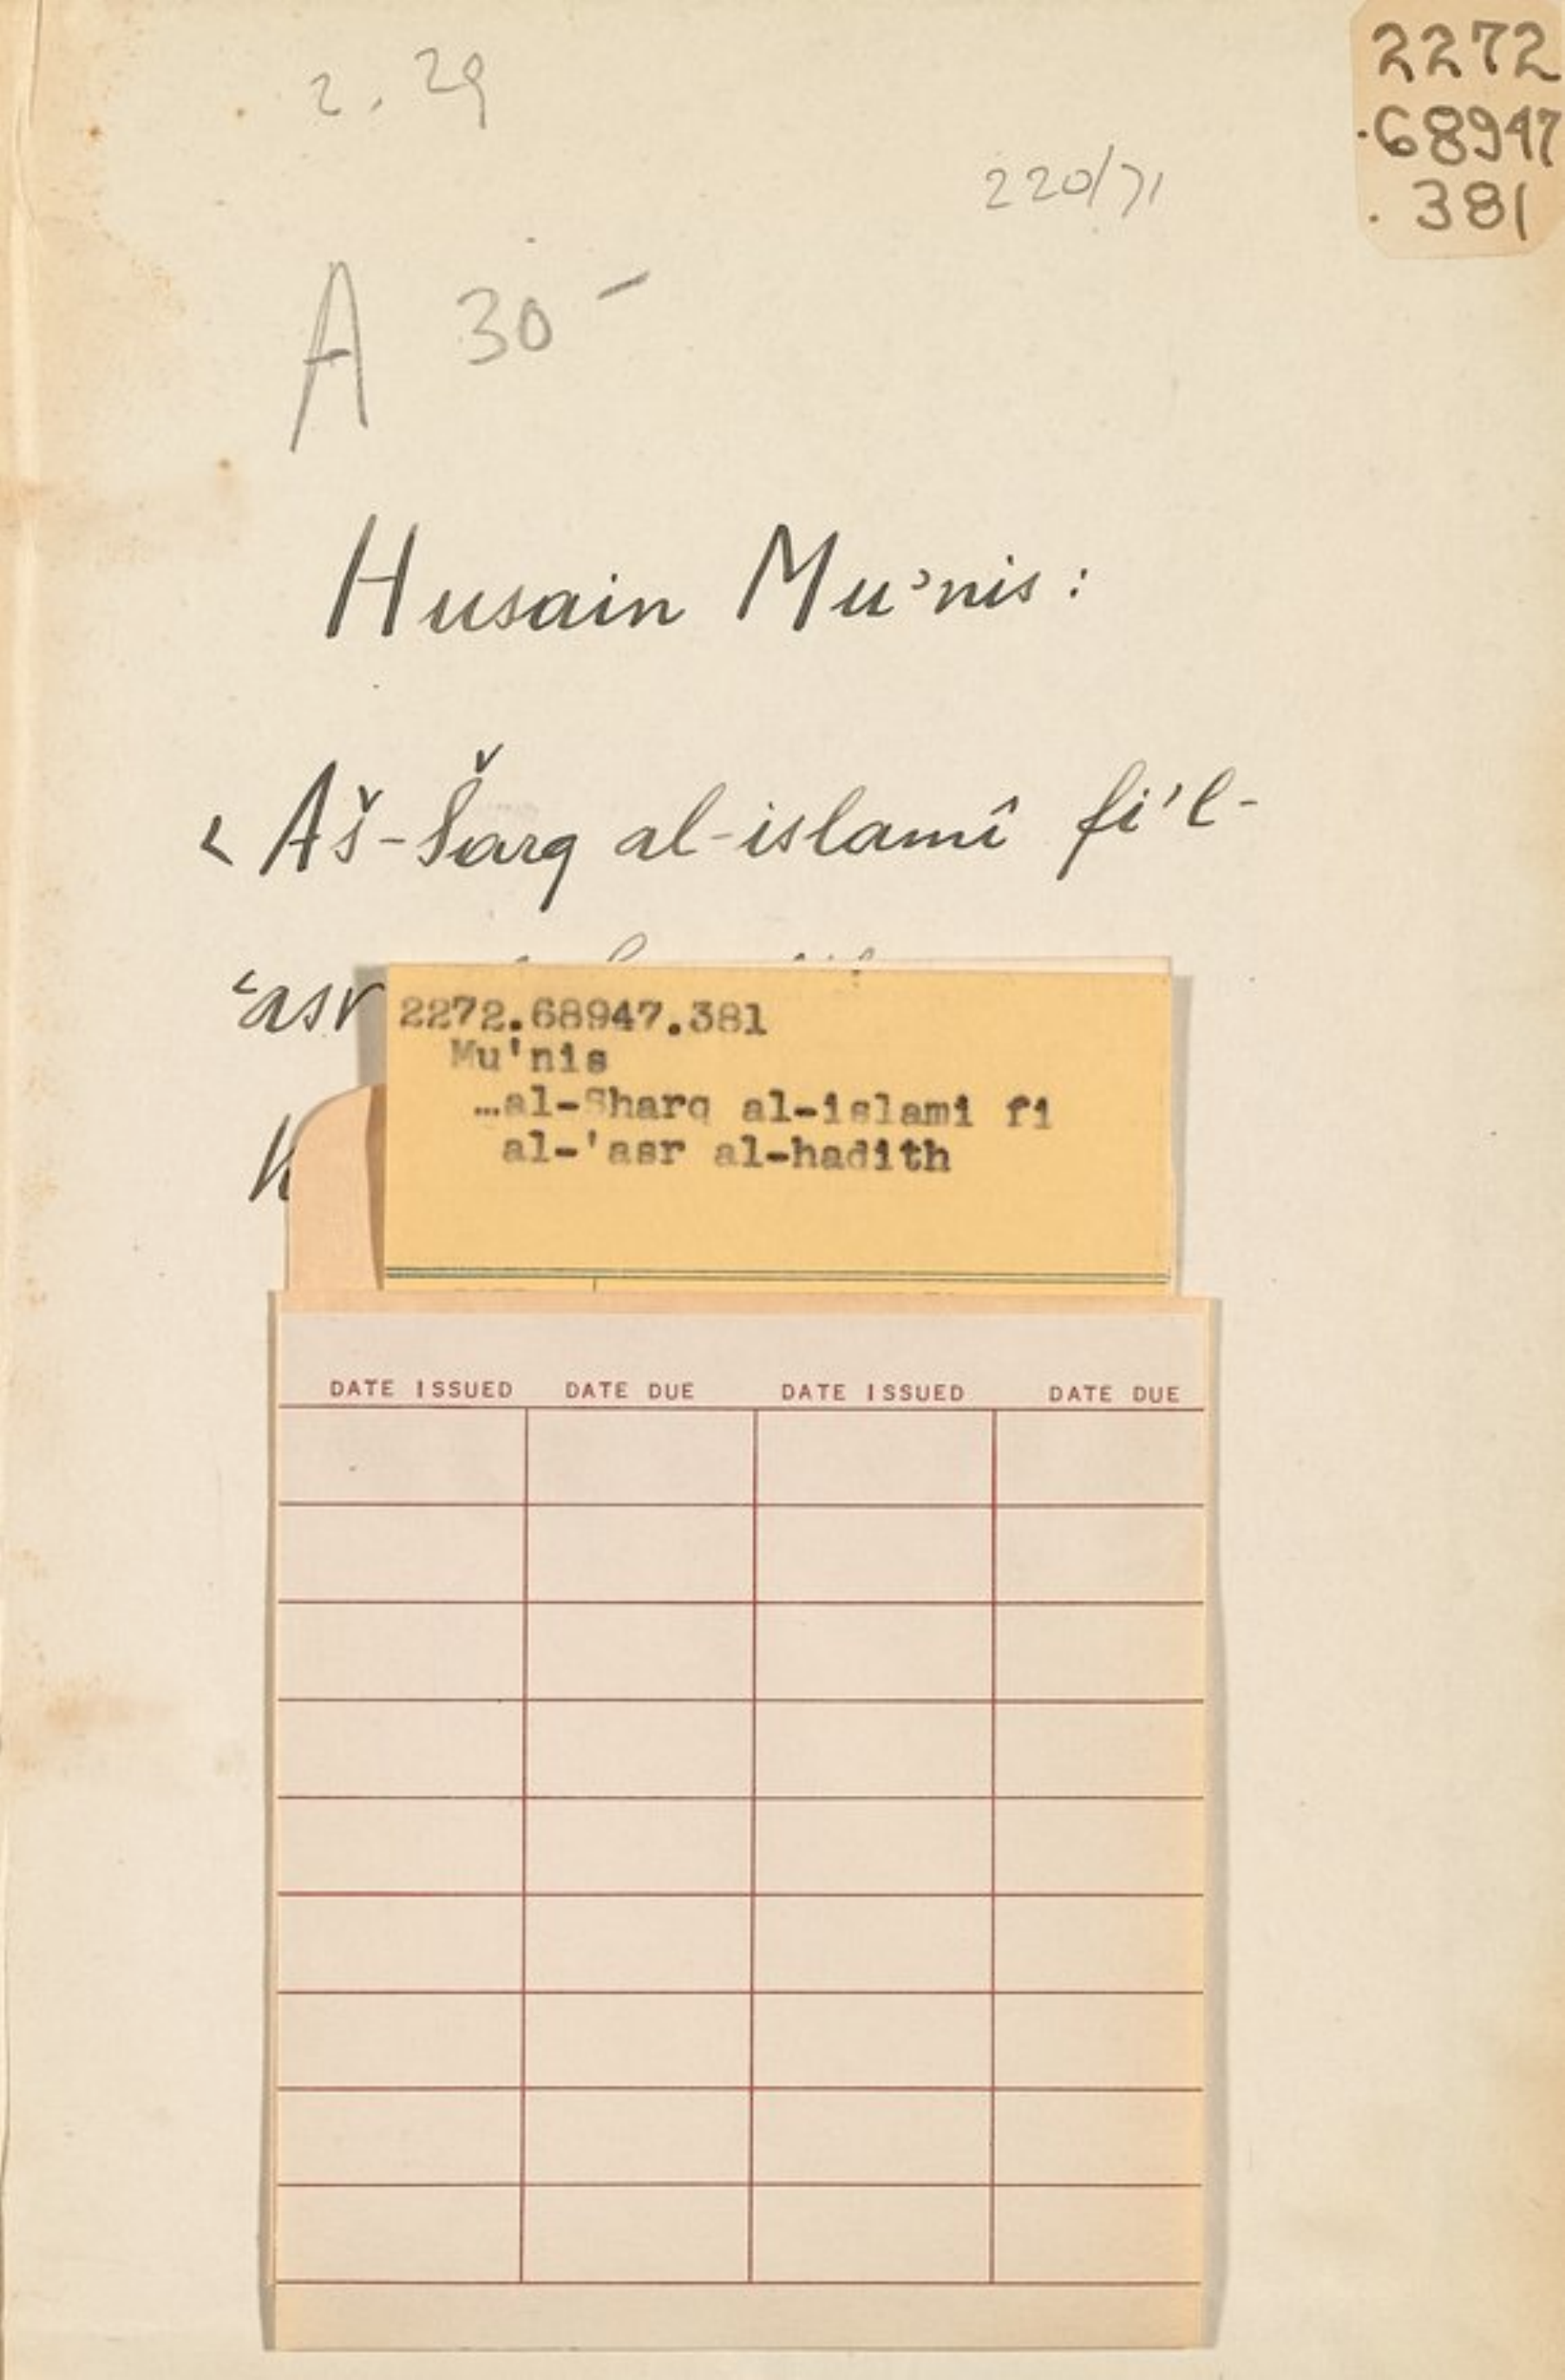 2. 29
2272
.68947
.381
220/71
A 30 -
Husain Mu'nis:
< Aš-Šarq al-islamî fi'l-
'asr
2272.68947.381
Mu'nis
...al-Sharq al-islami fi
al-'asr al-hadith
DATE ISSUED DATE DUE DATE ISSUED DATE DUE